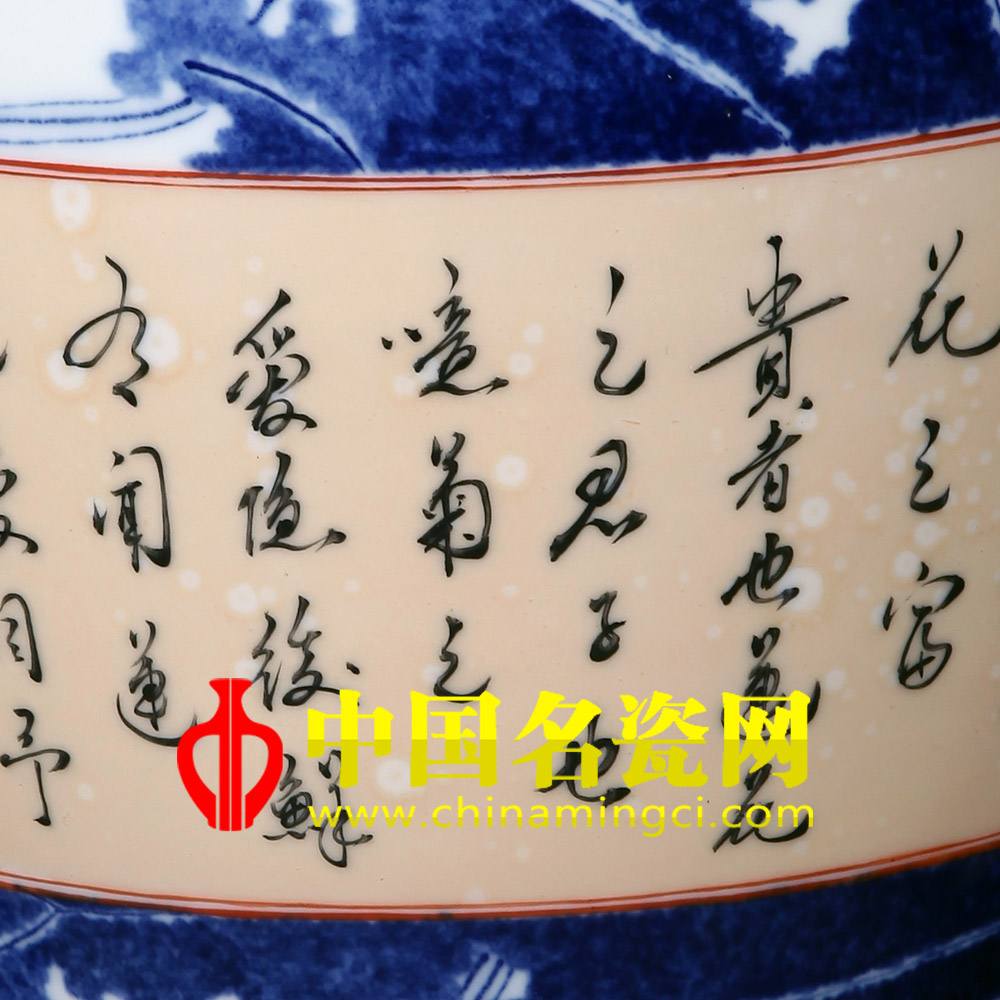 花之富
貴者也蓮花
之君子也
噫菊之
爱隐後鮮
有闻蓮
予
中国名瓷网
www.chinamingci.com